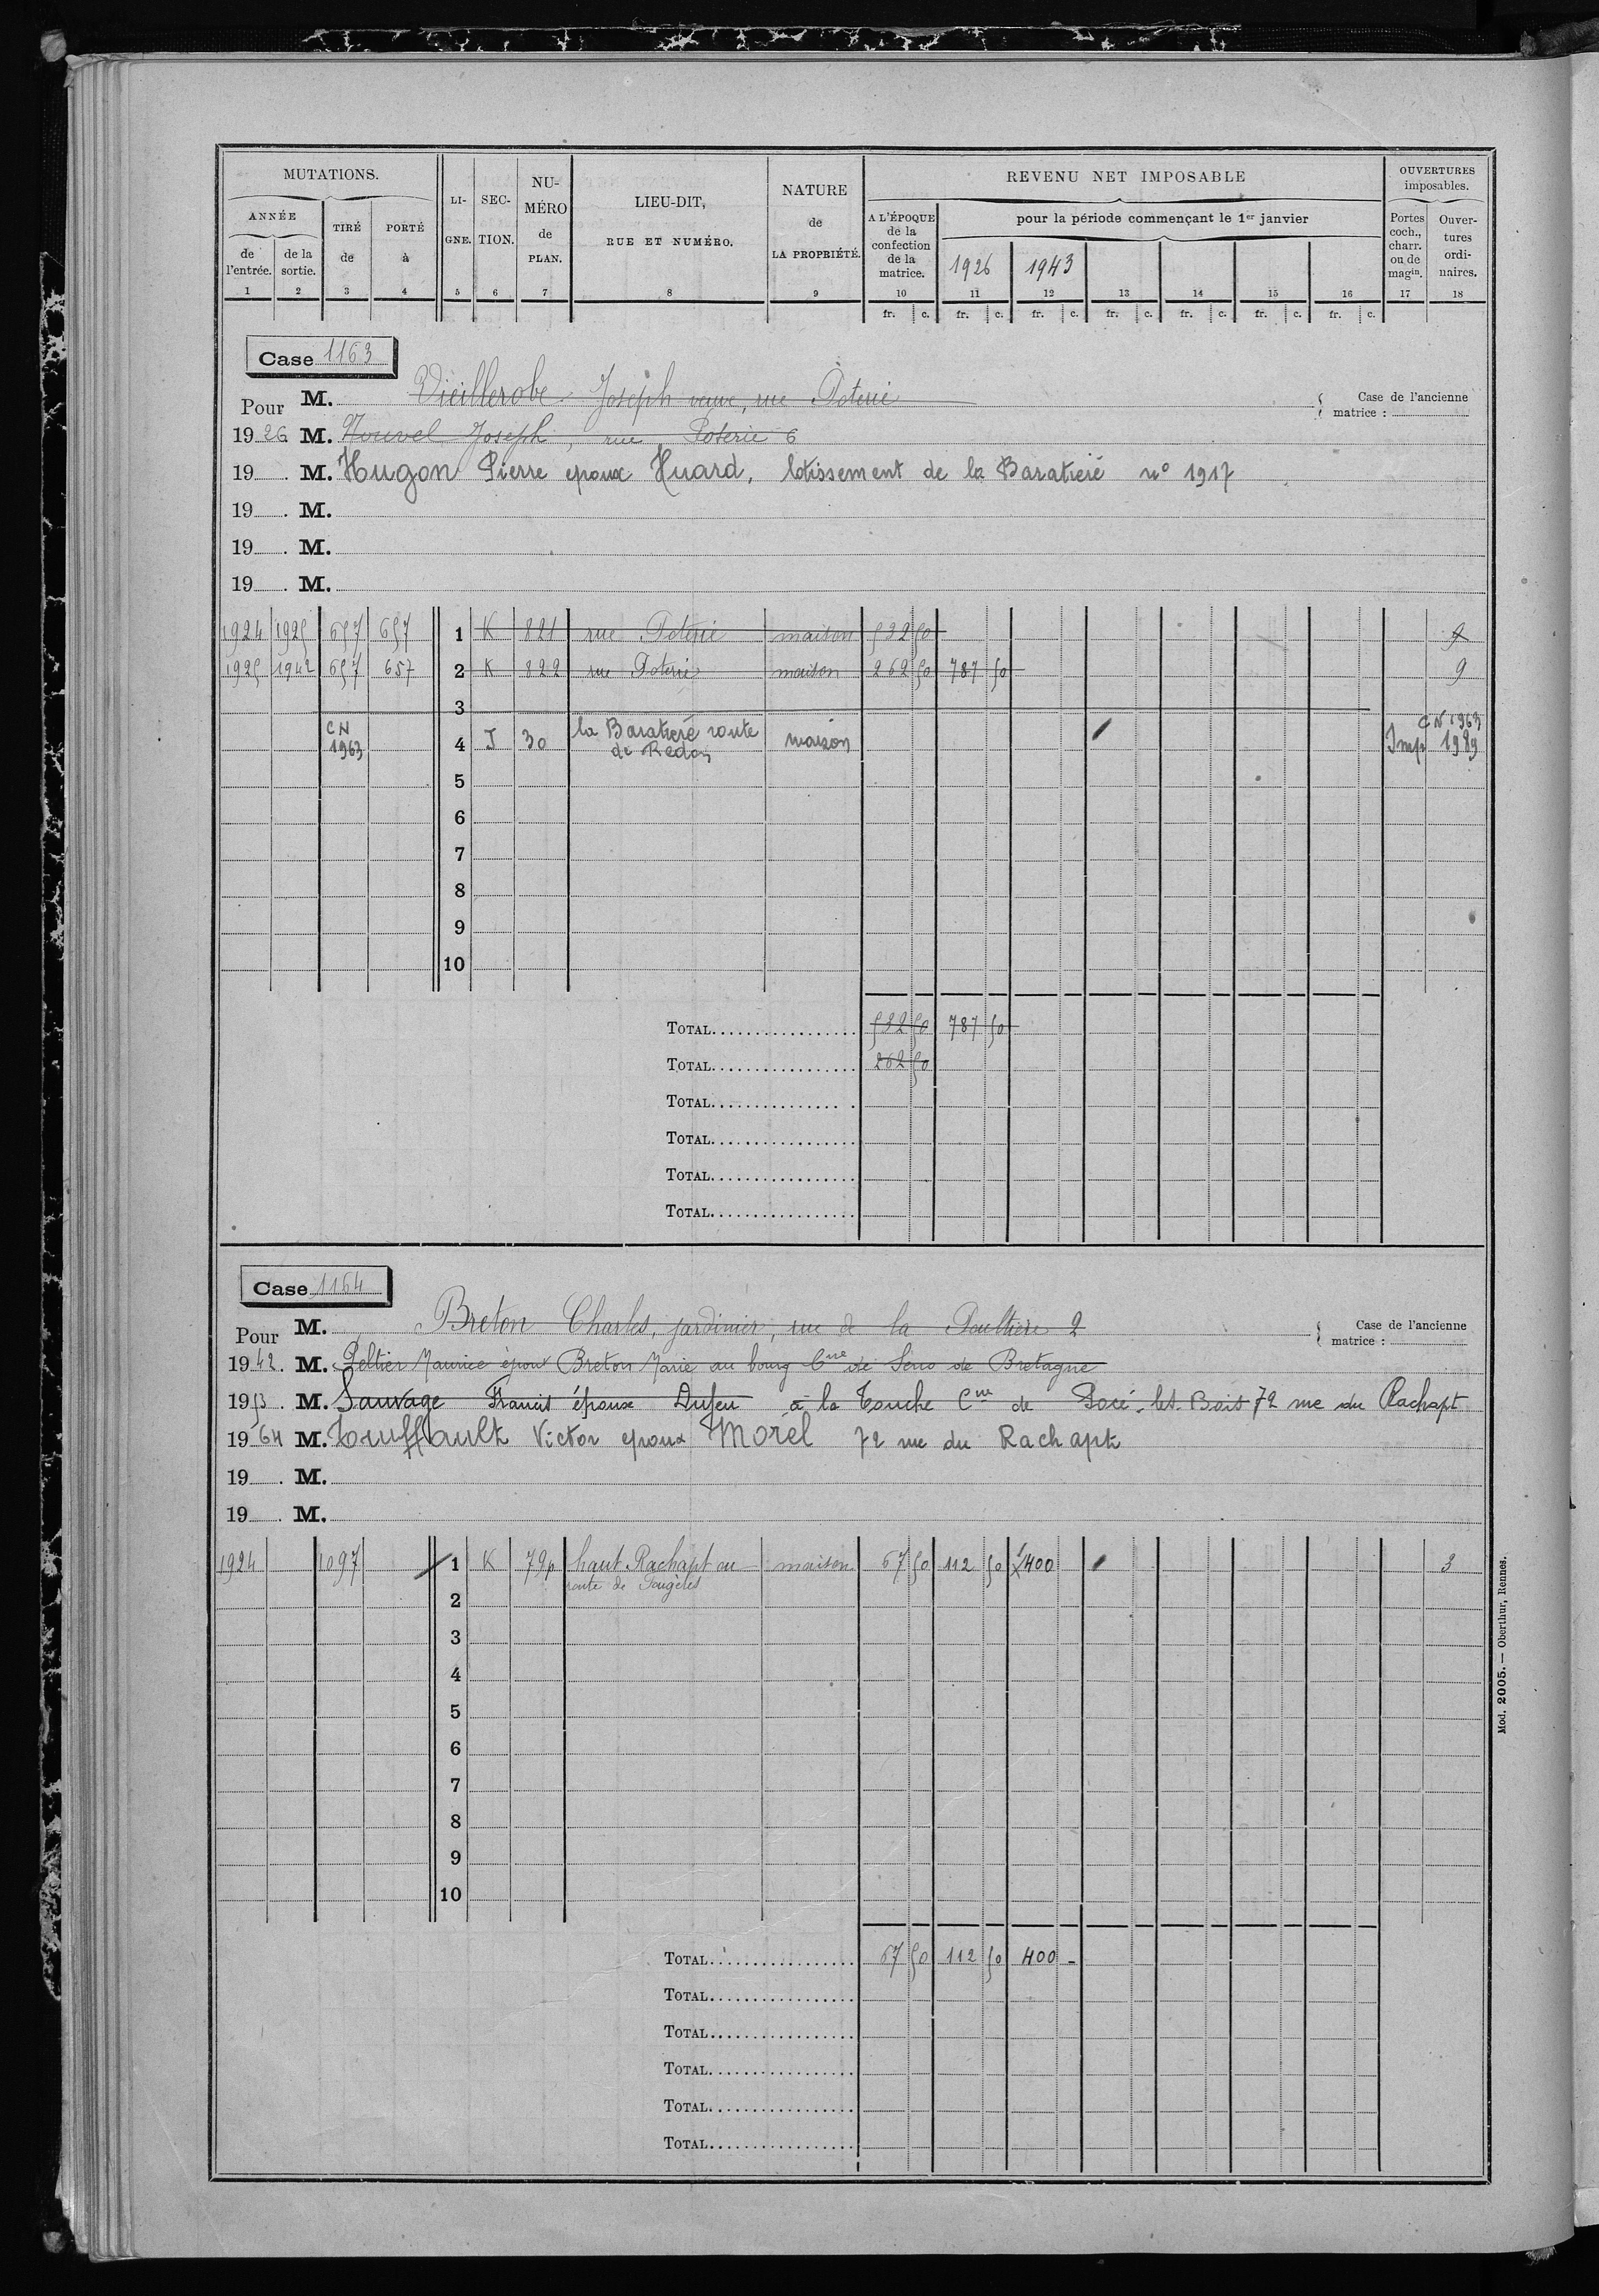 MUTATIONS.
ANNÉE
de l'entrée.
de la sortie.
TIRÉ de
PORTÉ à
LI-GNE.
SEC-TION.
NU-MÉRO de PLAN.
LIEU-DIT,
RUE ET NUMÉRO.
NATURE de LA PROPRIÉTÉ.
REVENU NET IMPOSABLE
A L'ÉPOQUE de la confection de la matrice.
pour la période commençant le 1er janvier
1926 1943
OUVERTURES imposables.
Portes coch., charr. ou de magin.
Ouver-tures ordi-naires.
1 2 3 4 5 6 7 8 9 10 11 12 13 14 15 16 17 18
fr. c. fr. c. fr. c. fr. c. fr. c. fr. c. fr. c.
Case 1163
Pour M. Vieillerobe Joseph veuve, rue Poterie
Case de l'ancienne matrice :
1926 M. Nouvel Joseph, rue Poterie 6
19 M. Hugon Pierre epoux Huard, lotissement de la Baratiere n° 1917
19 M.
19 M.
19 M.
1924 1925 657 657 1 K 821 rue Poterie maison 532 50 9
1925 1942 657 657 2 K 822 rue Poterie maison 262 50 787 50 9
3
CN 1963 4 J 30 la Baratiere route de Redon maison Imp CN 1963 1989
5
6
7
8
9
10
TOTAL 532 50 787 50
TOTAL 262 50
TOTAL
TOTAL
TOTAL
TOTAL
Case 1164
Pour M. Breton Charles, jardinier, rue de la Poultiere 2
Case de l'ancienne matrice :
1942 M. Peltier Maurice époux Breton Marie au bourg Cne de Sens de Bretagne
1953 M. Sauvage Francis époux Dufeu à la Touche Cne de Pocé-les-Bois 72 rue du Rachapt
1964 M. Touffault Victor epoux Morel 72 rue du Rachapt
19 M.
19 M.
1924 1097 1 K 79p haut Rachapt ou route de Fougères maison 67 50 112 50 400 3
2
3
4
5
6
7
8
9
10
TOTAL 67 50 112 50 400 -
TOTAL
TOTAL
TOTAL
TOTAL
TOTAL
Mod. 2005. — Oberthur, Rennes.